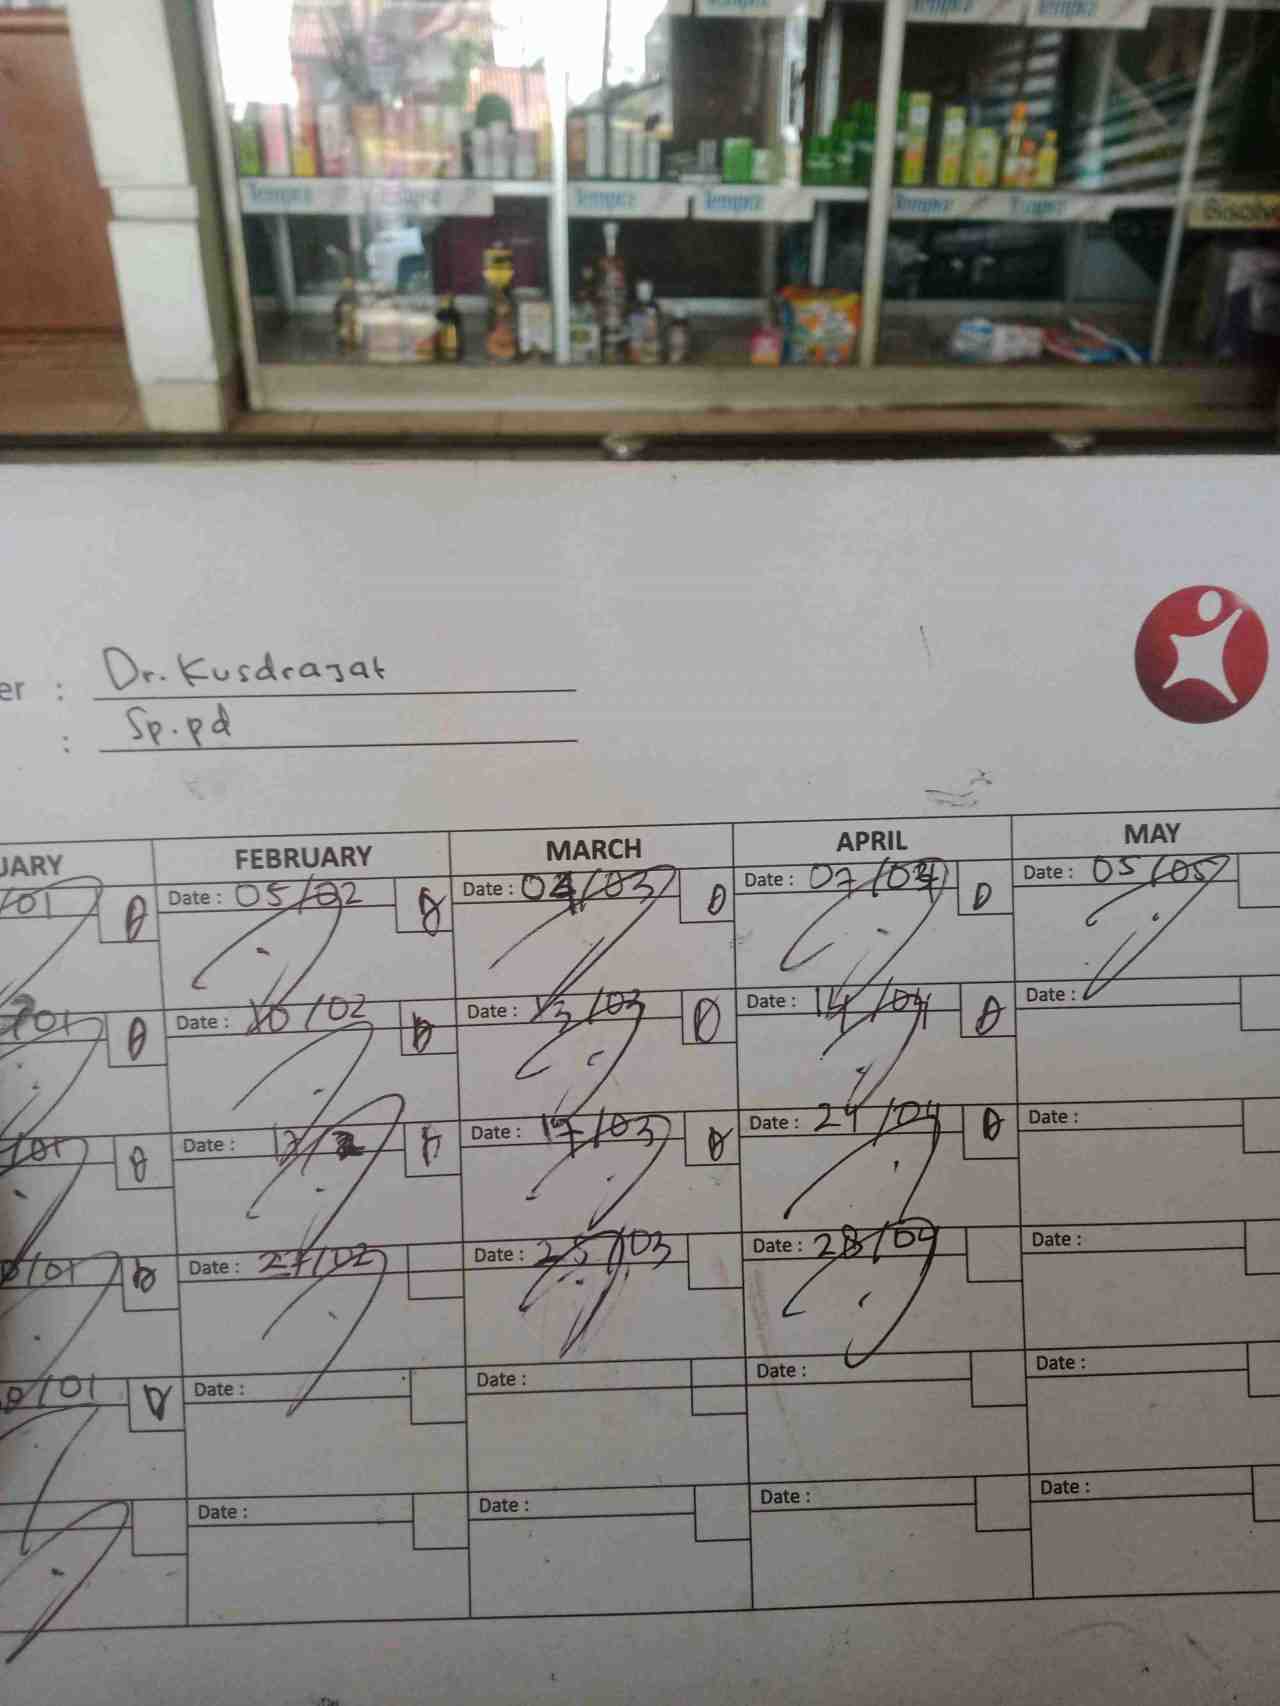 Tempra Tempra Tempra
Tempra Tempra Tempra Tempra Tempra Bisolv
er : Dr. Kusdrajat
: Sp.pd
UARY FEBRUARY MARCH APRIL MAY
/01 Date : 05/02 Date : 04/03 Date : 07/04 Date : 05/05
/01 Date : 10/02 Date : 13/03 Date : 14/04 Date :
/01 Date : 12/2 Date : 17/03 Date : 24/04 Date :
/01 Date : 27/02 Date : 25/03 Date : 28/04 Date :
/01 Date : Date : Date : Date :
Date : Date : Date : Date :